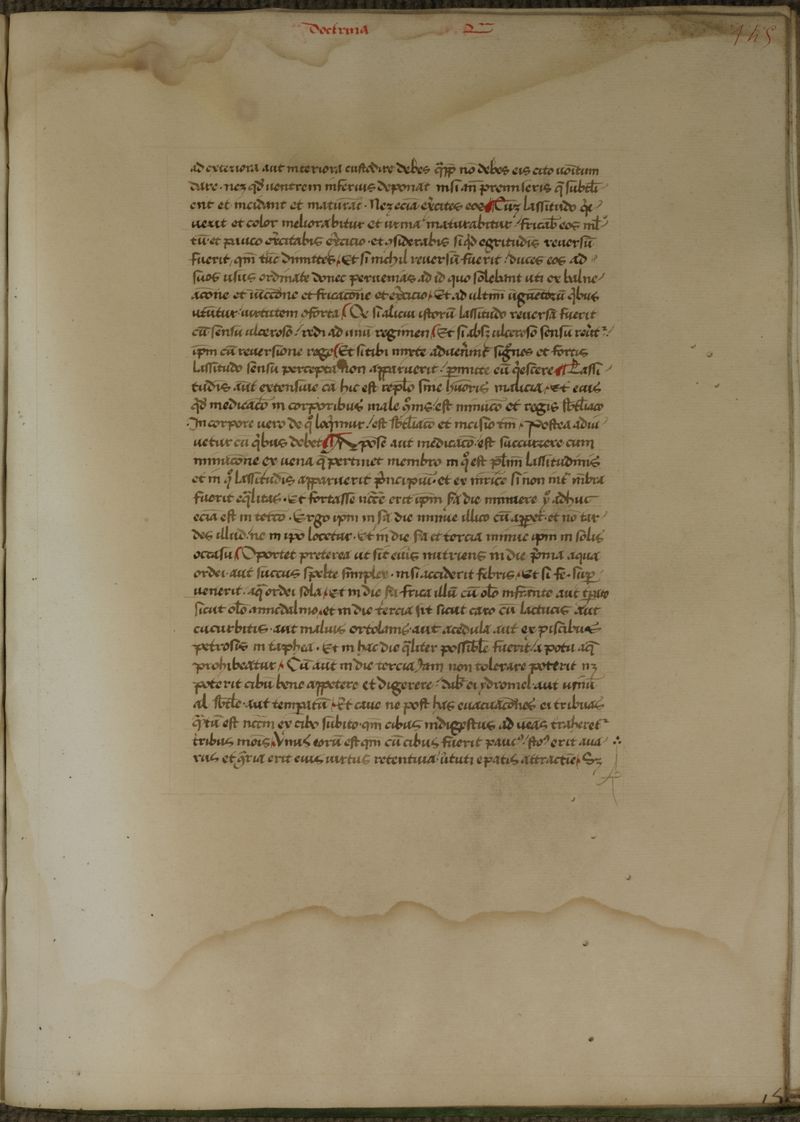 Doctrina 2ᵃ
145
ad exteriora aut interiora custodire debes q̄ꝓp̄ nō debes eis cito uōitum
dare · neꝫ qđ uentrem inferius deponat nisi an̄ premiseris q̄ subtili
ent et incidant et maturāt · Neꝫ ecia excites eos Cuꝫ lassitudo q̄e
uerit et color meliorabitur et urina maturabitur / fricab eos ml̄
tū et pauco exercitabis exercicio · et ɔsiderabis si qđ egritudīs reuersū
fuerit, qm̄ tūc dimittes. Et si nichil reuersū fuerit / duces eos ad
suos usus ordinate donec peruenias ad id quo solebant uti ex balne
acōne et iūccōne et fricacōne et exercicio. Et ad ultim ūgnētorū q̄bus
utūtur uirtutem ɔforta Qe si alicui istorū lassitudo reuersa fuerit
cū sensu ulceroso / redi ad unū regimen Et si absꝫ ulceroso sensu reūt
ip̄m cū reuersione rege Et si tibi inrte aduenīnt signes et fortis
lassitudo sensu percepta non apparuerit / ꝑmitte eū q̄escere Lassi
tudīs aut extensiue cā hic est replō sine huōris malicia. et eius
qđ medicacō in corporibus male ꝯms est minucō et regīs sbtiliacō
In corpore uero de q° loqmur / est sbtiliacō et incisio tm̄. Postea adiu
uetur cū q̄bus debet Pose aut medicacō est succurrere eum
minucōne ex uena q̄ pertinet membro in q° est pl̄im lassitudinis
et in q° lassitudīs apparuerit p̄ncipiū · et ex mrice si non int mbra
fuerit eq̄litas · Et fortasse nc̄ce erit ip̄m s̄a die minuere ꝯ adhuc
ecia est in tercō · Ergo ip̄m in s̄a die minue illico cū appet et nō tar
des illud ne in ip̄o locetur · Et in die s̄a et tercia minue ip̄m in solis
occasu Oportet preterea ut sit eius nutriens in die p̄ma aqua
ordei aut succus spelte simplex · nisi acciderit febris. Et si fe. sup̄
uenerit. aq̄ ordei sola. et in die s̄a frica illū cū olō infrante aut
sicut olō amicdalino. et in die tercia sit sicut caro cū lactucis aut
cucurbitis aut maluis ortolanis aut acedula aut ex piscibus
petrosis in taphea · Et in hac die q̄liter possible fuerit / a potu aq̄
prohibeatur. Cū aut in die tercia iam non tolerare poterit nꝫ
poterit cibū bene appetere et digerere / dab ei ydromel aut uinū
al sbtile aut tempatū. Et caue ne post has euacuacōnes ei tribuas
q̄tū est nccm ex cibo subito · qm̄ cibus indigestus ad ueas traheret
tribus mōis. Unus eorū est qm̄ cū cibus fuerit paucꝰ / stoꝰ erit aua
rus et q̄ria erit eius uirtus retentiua uirtuti epatis attractie. Sꝫ